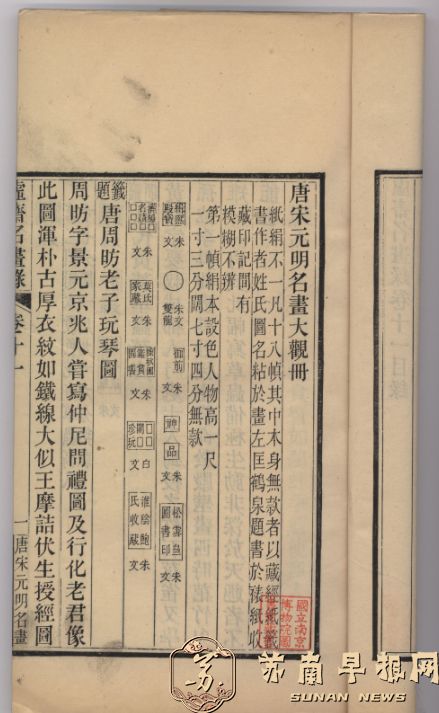 唐宋元明名畫大觀冊
紙絹不一凡十八幀其中本身無款者以藏經紙籤
書作者姓氏圖名粘於畫左匡鶴泉題書於裱紙收
藏印記間有
模糊不辨
第一幀絹本設色人物高一尺
一寸三分闊七寸四分無款
朱文
朱文
雙龍
御前
朱文
神品
朱文
松雪
圖書印
朱文
朱文
朱文
朱文
白文
珍玩
淮陰鮑
氏收藏
朱文
籤題
唐周昉老子玩琴圖
周昉字景元京兆人嘗寫仲尼問禮圖及行化老君像
此圖渾朴古厚衣紋如鐵線大似王摩詰伏生授經圖
虛齋名畫錄
卷十一
一
唐宋元明名畫
國立南京
博物院圖
苏南早报网
SUNAN NEWS